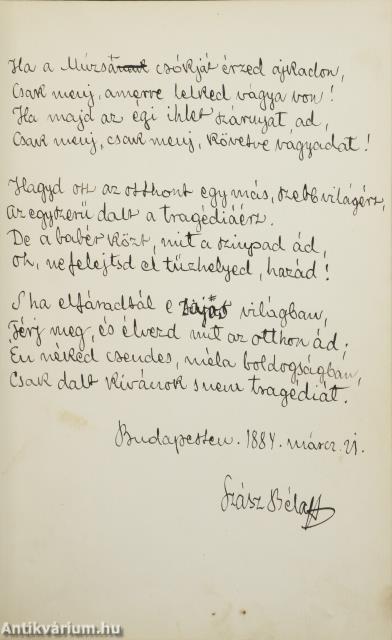 Ha a Múzsá csókját érzed ajkadon,
Csak menj, amerre lelked vágya von!
Ha majd az égi ihlet szárnyat ád,
Csak menj, csak menj, követve vágyadat!
Hagyd ott az otthont egy más, szebb világért,
Az egyszerű dalt a tragédiáért.
De a babér közt, mit a szinpad ád,
Oh, ne felejtsd el tűzhelyed, hazád!
S ha elfáradtál e zajos világban,
Térj meg, és élvezd mit az otthon ád;
Én néked csendes, méla boldogságban,
Csak dalt kivánok s nem tragédiát.
Budapesten. 1884. márcz. 21.
Szász Béla
Antikvárium.hu